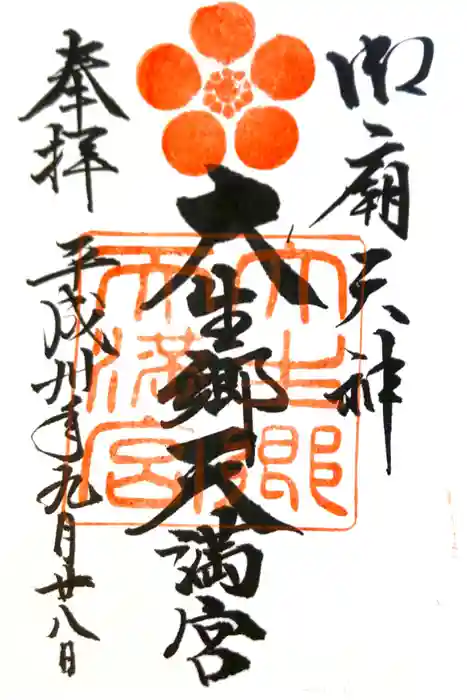 御廟天神
大生郷天満宮
大生郷天満宮
奉拝
平成卅年九月廿八日